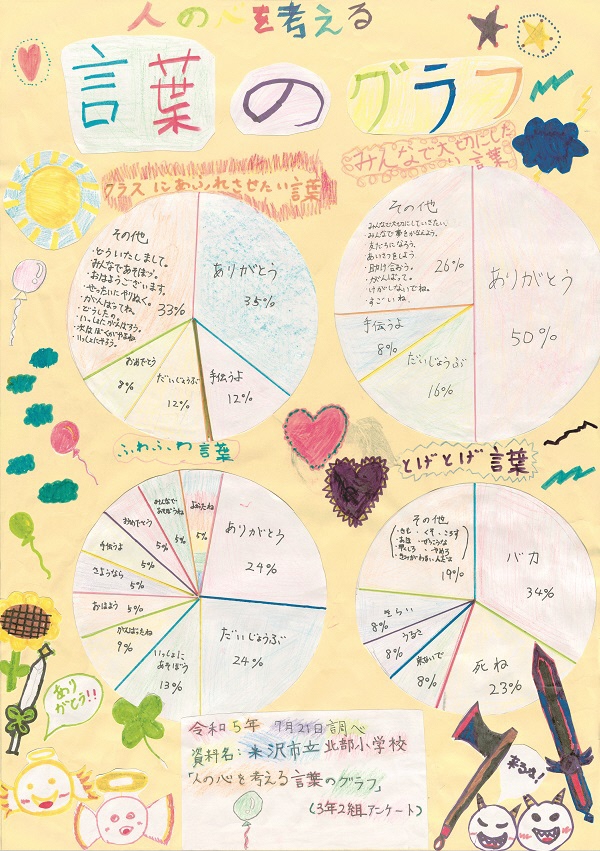 人の心を考える
言葉のグラフ
クラスにあふれさせたい言葉
その他
・どういたしまして。
・みんなであそぼっ。
・おはようございます。
・ぜったいにやりぬく。
・がんばってね。
・どうしたの。
・いっしょにがんばろう。
・いっしょにやろう。
33%
ありがとう
35%
手伝うよ
12%
だいじょうぶ
12%
おめでとう
8%
みんなで大切にしたい言葉
その他
みんなで大切にしていきたい。
・みんなで夢をかなえよう。
・友だちになろう。
・あいさつをしよう
・助け合おう。
・がんばって。
・けがしないでね。
・すごいね。
26%
ありがとう
50%
手伝うよ
8%
だいじょうぶ
16%
ふわふわ言葉
ありがとう
24%
だいじょうぶ
24%
いっしょに
あそぼう
13%
がんばったね
9%
おはよう
5%
さようなら
5%
手伝うよ
5%
おめでとう
5%
みんなで
あそぼうね
5%
よかったね
5%
とげとげ言葉
その他
19%
バカ
34%
死ね
23%
来ないで
8%
うるさ
8%
きらい
8%
ありがとう!!
令和5年 9月21日調べ
資料名:米沢市立北部小学校
「人の心を考える言葉のグラフ」
(3年2組アンケート)